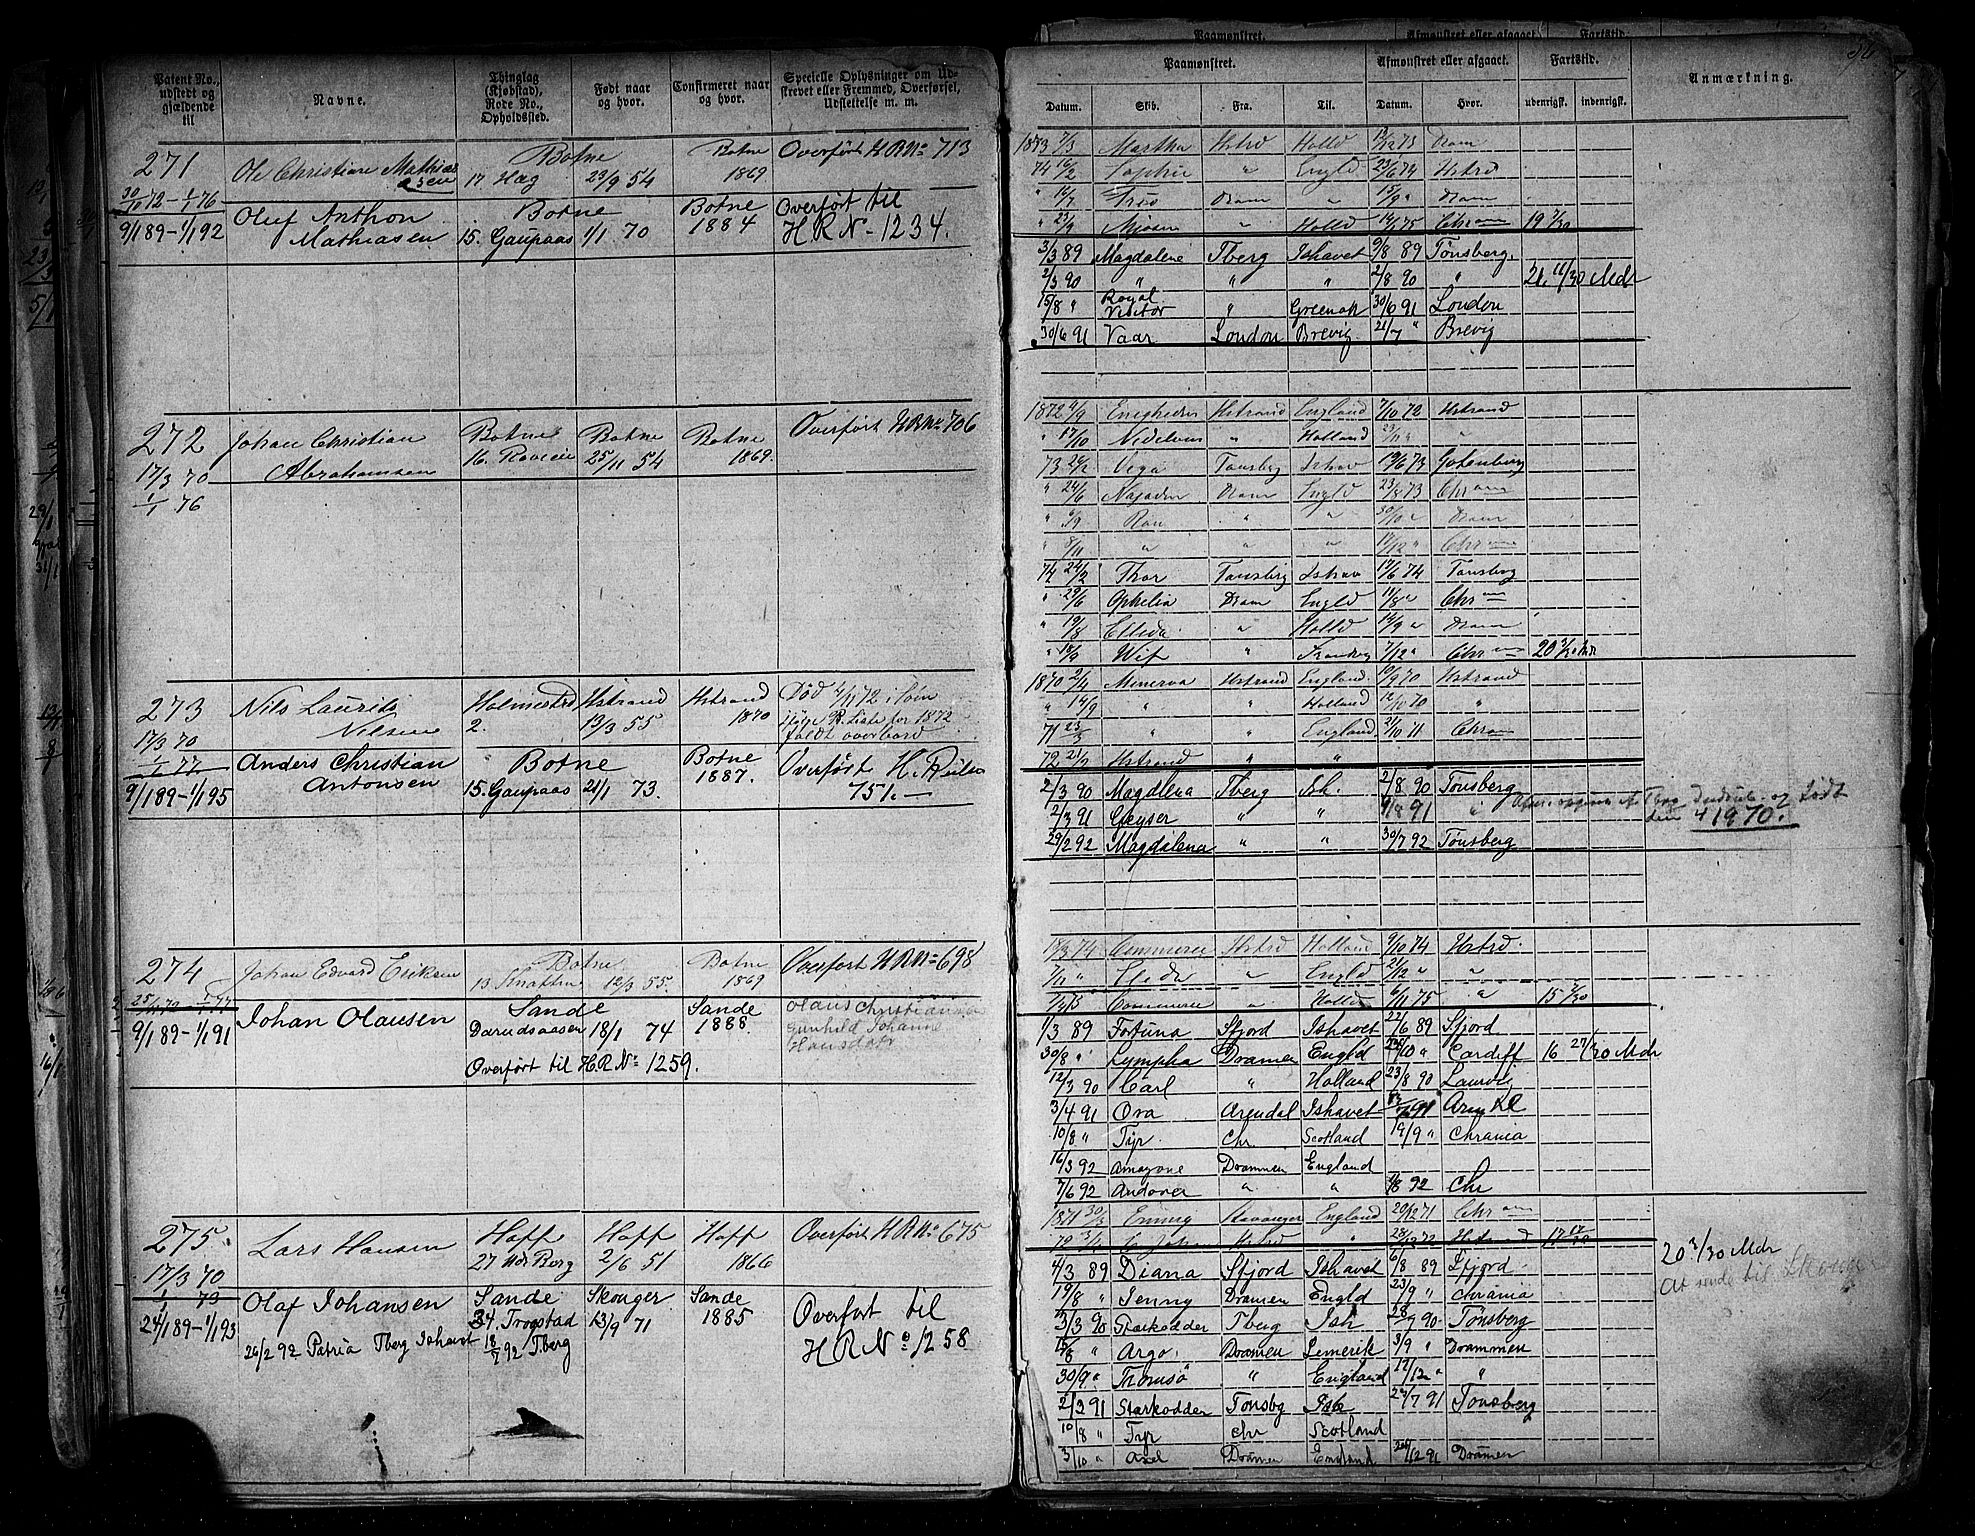 Patent No., udstedt og gjældende til
Navne.
Thinglag (Kjøbstad), Rode No., Opholdssted.
Født naar og hvor.
Confirmeret naar og hvor.
Specielle Oplysninger om Udskrevet eller Fremmed, Overførsel, Udslettelse m. m.
271
30/10 72 – 1/1 76
Ole Christian Mathiasen
Botne
17 Hæg 23/9 54
Botne 1869
Overført HRNo 713
9/1 89 – 1/1 92
Oluf Anthon
Mathiasen
Botne
15. Gaupaas 1/1 70
Botne 1884
Overført til
H.R.No 1234.
272
17/3 70
1/1 76
Johan Christian
Abrahamsen
Botne
16. Roveien
Botne
25/11 54
Botne
1869.
Overført HRNo 706
273
17/3 70
1/1 77
Nils Laurits
Nilsen
Holmestrd
2.
Hstrand
13/3 55
Hstrand
1870
faldt overbord
9/1 89 – 1/1 95
Anders Christian
Antonsen
Botne
15. Gaupaas 21/1 73.
Botne
1887.
Overført H. Rulle
751.
274
25/11 72 1/1 77
Johan Edvard Eriksen
Botne
13 Knatten 12/3 55.
Botne
1869
Overført HRNo 698
9/1 89 – 1/1 91
Johan Olausen
Sande
18/1 74
Sande
1888.
Olaus Christiansen
Gunhild Johanne
Hansdatr
Overført til H.R.No 1259.
275.
17/3 70
1/1 73
Lars Hansen
Hoff
27 Ndr Berg
Hoff
2/6 51
Hoff
1866
Overført HRNo 675
24/1 89 – 1/1 93
Olaf Johansen
Sande
34. Trogstad
Skouger
13/9 71
Sande
1885
Overført til
H R No 1258
29/2 92 Patria Tberg Ishavet 18/7 92 Tberg
Paamønstret.
Afmønstret eller afgaaet.
Fartstid.
Anmærkning.
Datum. Skib. Fra. Til. Datum. Hvor. udenrigsk. indenrigsk.
1873 7/3 Martha Hstrd Holld 13/12 73 Dram
74 16/2 Sophie " Engld 23/6 74 Hstrd
" 14/7 Dram " 15/9 " Dram
" 23/9 Mjøsen " Holld 14/1 75 Chr 19 7/30
3/3 89 Magdalene Tberg Ishavet 9/8 89 Tønsberg.
2/3 90 " " " 2/8 90 " 21 11/30 Mdr
15/8 " Royal Visitor " Greenok 30/6 91 London
30/6 91 Vaar London Brevig 21/7 " Brevig
1872 4/9 Enigheden Hstrand England 7/10 72 Hstrand
" 17/10 Nidelven " Holland "
73 26/2 Vega Tønsberg Ishav 19/6 73 Gotenberg
" 24/6 Najaden Dram Engld 23/8 73 Chr
" 6/9 Ran " " 30/10 " Dram
" 8/11 " " " Chr
74 24/2 Thor Tønsberg Ishav 17/6 74 Tønsberg
" 29/6 Ophelia Dram Engld 11/8 " Chr
" 19/8 Ellida " Holld 14/9 " Dram
" 18/9 Wif " 7/12 " Chr
1870 2/4 Minerva Hstrand England 10/9 70 Hstrand
" 14/9 " " Holland 12/10 70 "
71 23/3 " " England 21/10 71 Chr
72 21/2 Hstrand " "
2/3 90 Magdlena Tberg Ish. 2/8 90 Tønsberg
2/3 91 Geyser " " 9/8 91 "
29/2 92 Magdalena " " 30/7 92 Tønsberg
1970.
18/3 74 Commerce Hstrd Holland 9/10 74 Hstrd.
" Engld 21/12 " "
Commerce " Holld 6/11 75 " 15 7/30
1/3 89 Fortuna Sfjord Ishavet 22/6 89 Sfjord
30/8 " Lympha Drammen Engld Cardiff 16 27/30 Mdr
12/3 90 Carl " Holland 23/8 90 Laurvig
3/4 91 Ora Arendal Ishavet
10/8 " Tyr. Chr Scotland 19/9 " Chrania
16/3 92 Amazone Drammen England
7/6 92 Andover " " 1/8 92 Chr
1871 30/3 Stavanger England 20/12 71 Chr
Hstrd " Hstrand 17 17/30
4/3 89 Diana Sfjord Ishavet 6/8 89 Sfjord
19/8 " Jenny Drammen Engld 23/9 " Chrania
3/3 90 Starkodder Tberg Ish 90 Tønsberg
15/8 " Argo. Drammen Lemerik 3/9 " Drammen
30/9 " Thomsö " England 17/12 " "
2/3 91 Starkodder Tønsbg Ish 7 91 Tønsberg
10/8 " Tyr Chr Scotland
3/10 " Axel Drammen England 12 91 Drammen
20 3/30 Mdr